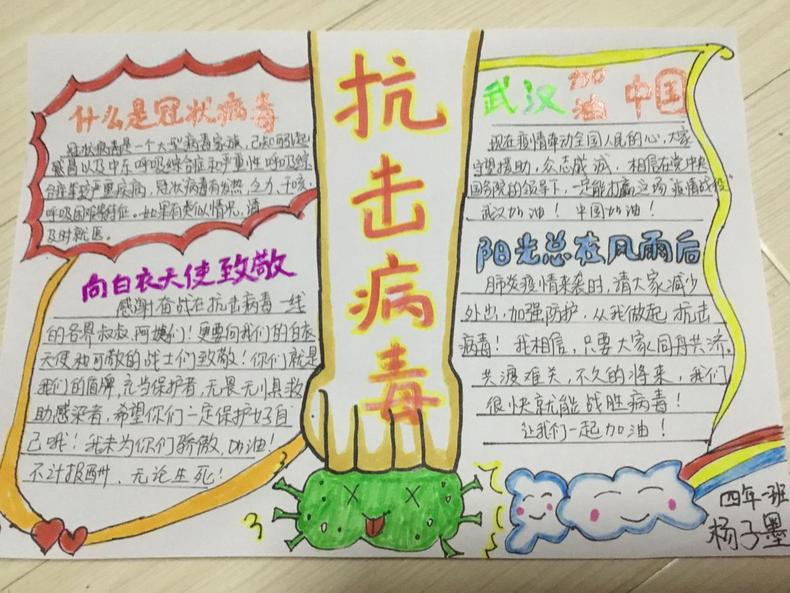 什么是冠状病毒
冠状病毒是一个大型病毒家族,已知可引起
感冒以及中东呼吸综合症和严重性呼吸综
合症等较严重疾病,冠状病毒有发热,乏力,干咳,
呼吸困难等特征。如果有类似情况,请
及时就医。
向白衣天使致敬
感谢奋战在抗击病毒一线
的各界叔叔,阿姨们!更要向我们的白衣
天使和可敬的战士们致敬!你们就是
我们的盾牌,充当保护者,无畏无惧救
助感染者,希望你们一定保护好自
己哦!我未为你们骄傲,加油!
不计报酬,无论生死!
抗击病毒
武汉加油 中国
现在疫情牵动全国人民的心,大家
守望援助,众志成城,相信在党中央
国务院的领导下,一定能打赢这场疫情战役
武汉加油!中国加油!
阳光总在风雨后
肺炎疫情来袭时,请大家减少
外出,加强防护,从我做起抗击
病毒!我相信,只要大家同舟共济,
共渡难关,不久的将来,我们
很快就能战胜病毒!
让我们一起加油!
四年一班
杨子墨